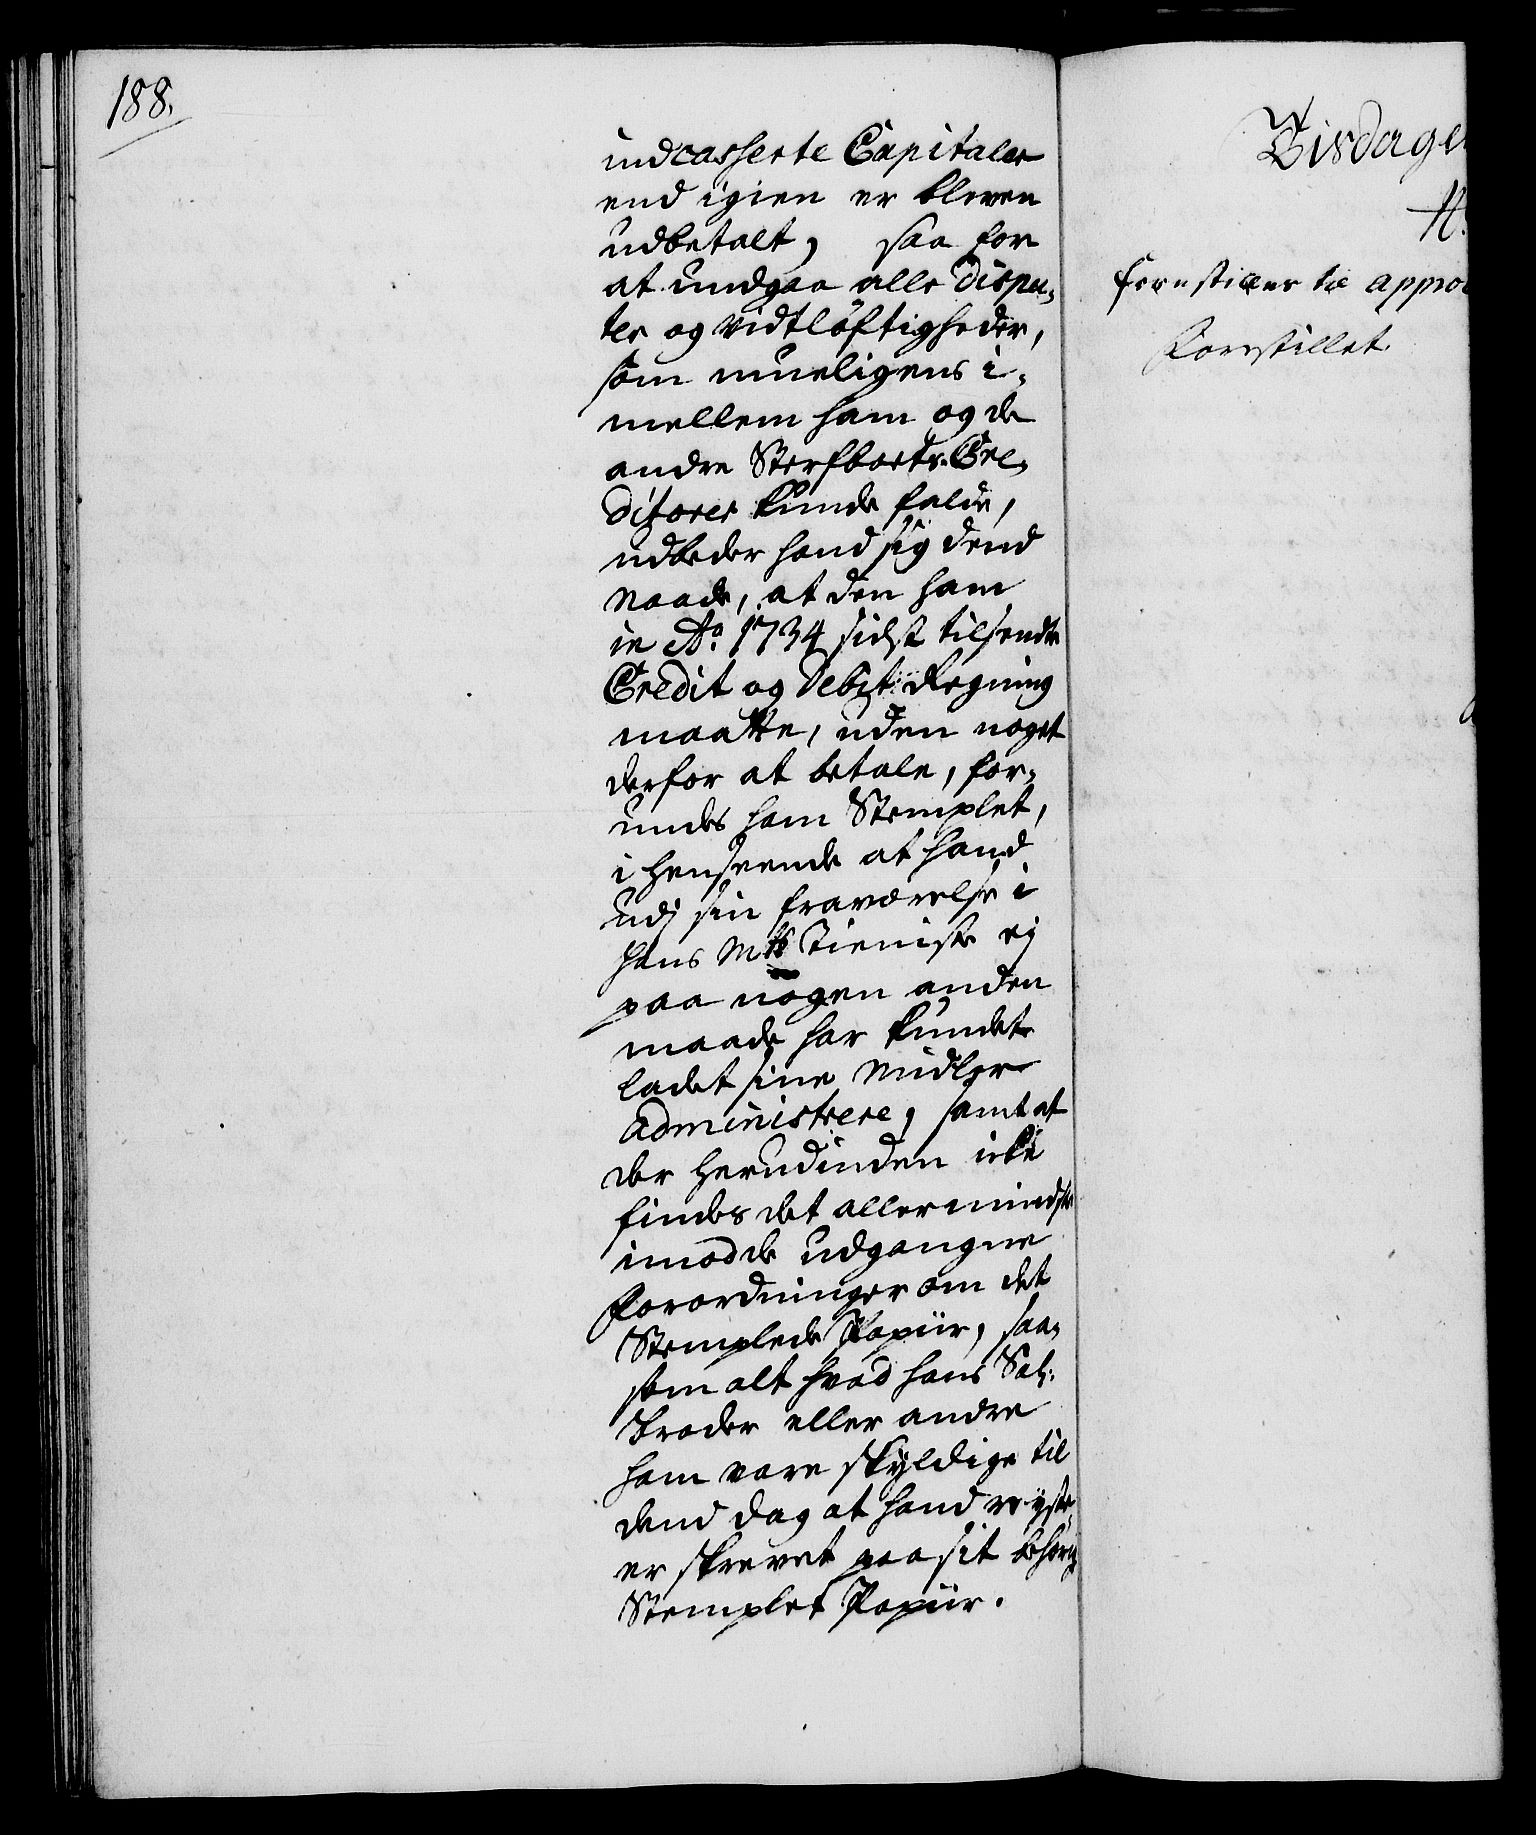 188.
indcasserte Capitaler
end igien er bleven
udbetalt, saa for
at undgaa alle dispu-
ter og vidtløftigheder,
som mueligens i-
mellem ham og de
andre Sterfboets Cre-
ditorer kunde falde,
udbeder hand sig dend
Naade, at den ham
in Ao. 1734 sidst tilsendte
Credit og Debit Regning
maatte, uden noget
derfor at betale, for-
undes ham Stemplet,
i henseende at hand
udj sin fraværelse i
hans Mts Tieniste ej
paa nogen anden
maade har kundet
ladet sine Midler
administrere, samt at
der herudinden icke
findes det allermindste
imod de udgangne
Forordninger om det
Stemplede Papiir, saa-
som alt hvad hans Sal:
Broder eller andre
ham vare skyldige til
dend dag at hand reyste,
er skrevet paa sit behørig
Stemplet Papiir.
Tisdage
N.
forestilles til appro
Forestillet.